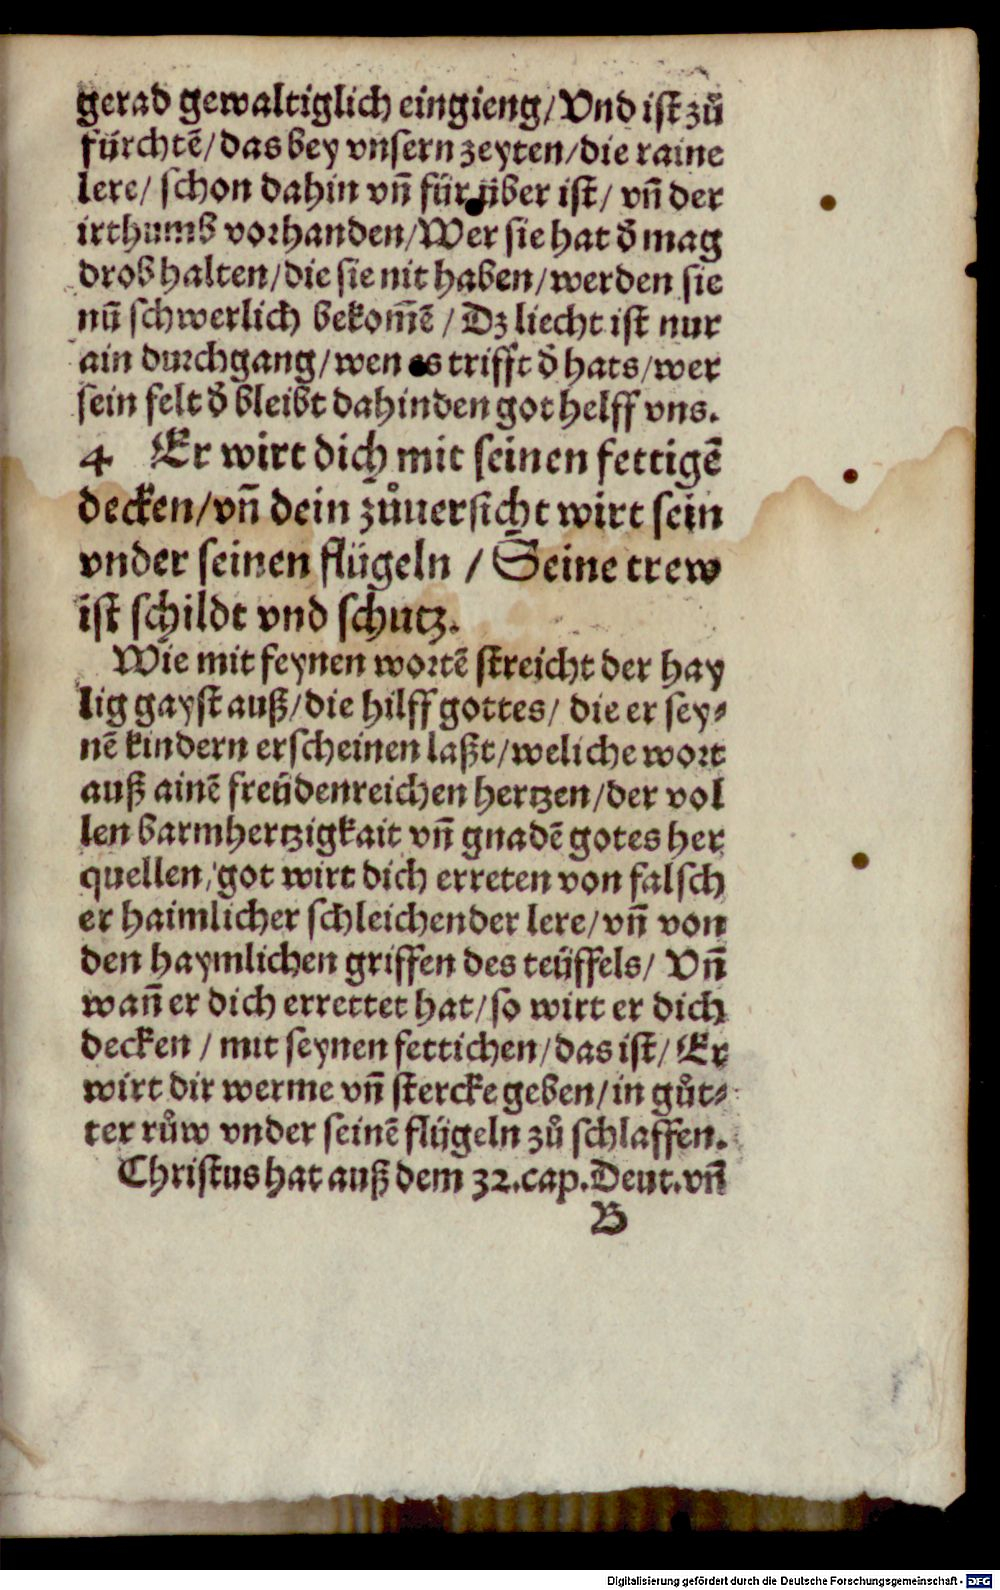 gerad gewaltiglich eingieng/ Vnd ist zů
fürchtẽ/ das bey vnsern zeyten/ die raine
lere/ schon dahin vñ für über ist/ vñ der
irthumb vorhanden/ Wer sie hat d̕ mag
drob halten/ die sie nit haben/ werden sie
nũ schwerlich bekom̃ẽ / Dz liecht ist nur
ain durchgang/ wen es trifft d̕ hats/ wer
sein felt d̕ bleibt dahinden got helff vns.
4 Er wirt dich mit seinen fettigẽ
decken/ vñ dein zůuersicht wirt sein
vnder seinen flügeln / Seine trew
ist schildt vnd schutz.
Wie mit feynen wortẽ streicht der hay
lig gayst auß/ die hilff gottes/ die er sey⸗
nẽ kindern erscheinen laßt/ weliche wort
auß ainẽ freüdenreichen hertzen/ der vol
len barmhertzigkait vñ gnadẽ gotes her
quellen, got wirt dich erreten von falsch
er haimlicher schleichender lere/ vñ von
den haymlichen griffen des teüffels/ Vñ
wañ er dich errettet hat/ so wirt er dich
decken / mit seynen fettichen/ das ist/ Er
wirt dir werme vñ stercke geben/ in gůt⸗
ter růw vnder seinẽ flügeln zů schlaffen.
Christus hat auß dem 32. cap. Deut. vñ
B
Digitalisierung gefördert durch die Deutsche Forschungsgemeinschaft - DFG